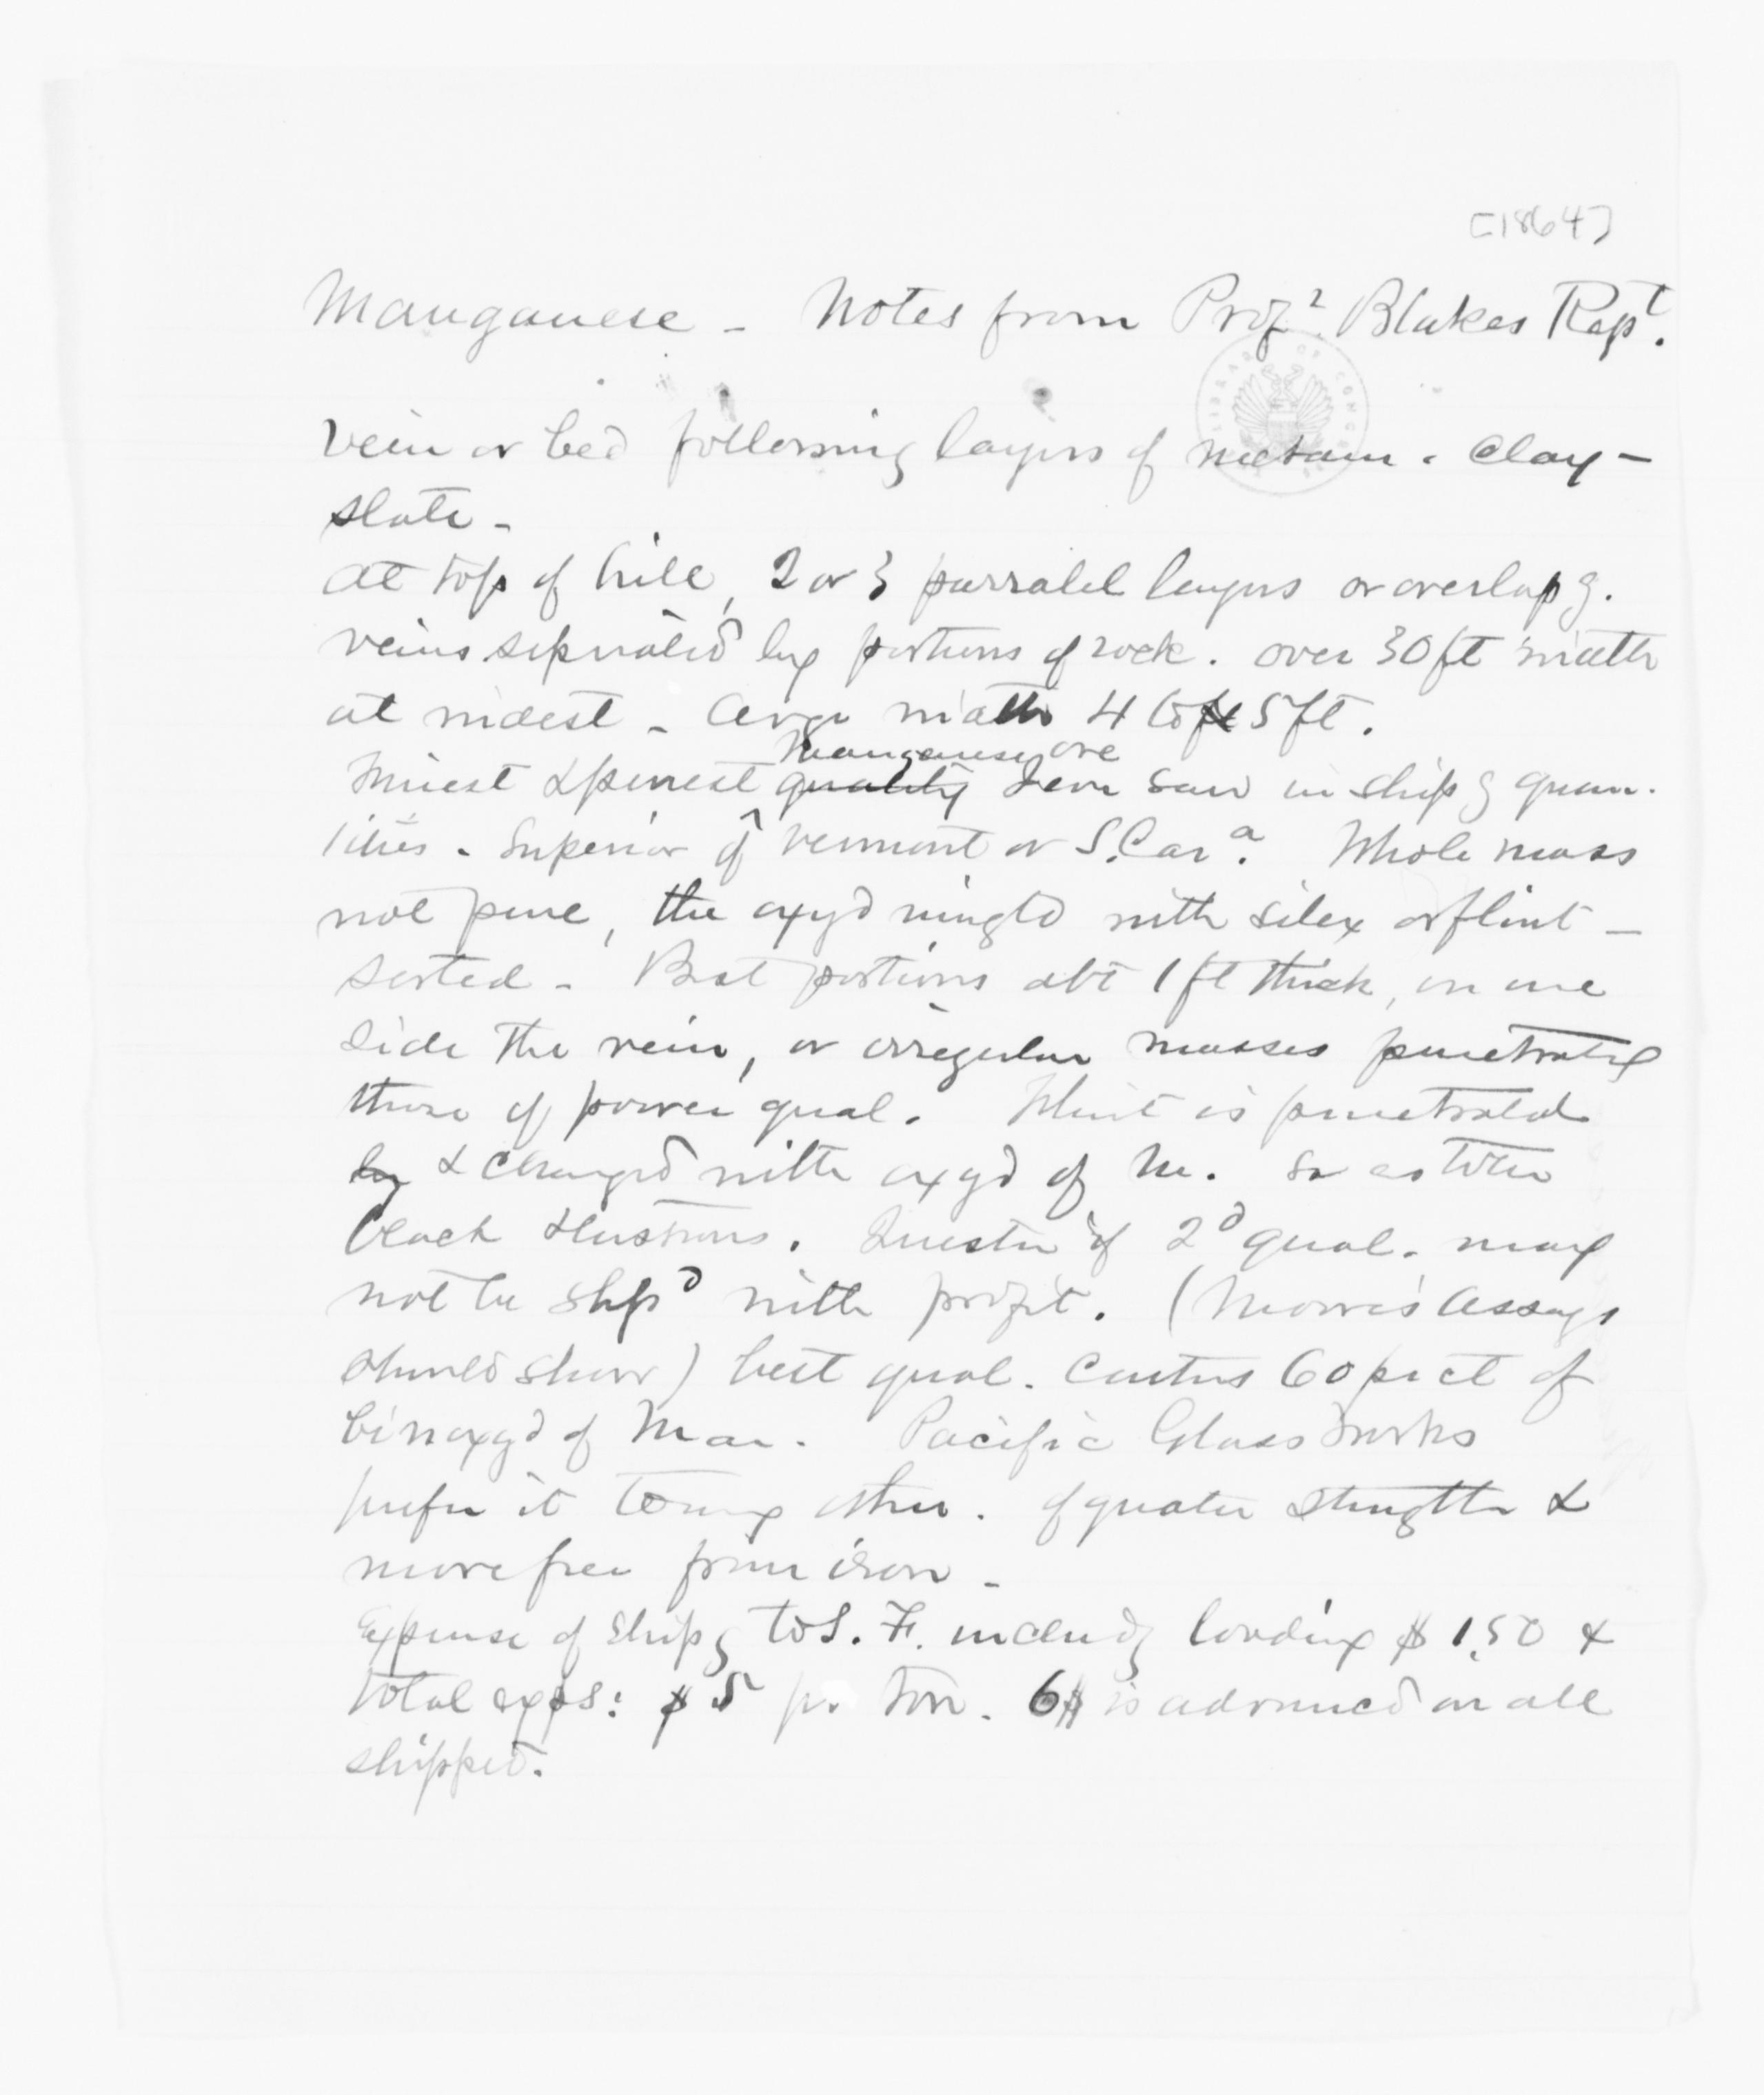 [1864]
Manganese - Notes from Profr. Blakes Rept.
Vein or bed following layers of metam. clay-
slate -
At top of hill, 2 or 3 parralel layers or overlapg.
veins separated by portions of rock. over 30 ft width
at widest - Avge width 4 to 5 ft.
Finest & purest quality Manganese ore I ever saw in shipg quan-
tities. Superior of Vermont or S. Cara. Whole mass
not pure, the oxyd mingld with silex or flint -
sorted - Best portions abt 1 ft thick, on one
side the vein, or irregular masses penetratg
those of poorer qual. Flint is penetrated
by & changed with oxyd of M. so as to be
black & lustrous. Question if 2d qual. may
not be shpd with profit. (Morris' assays
should show) best qual. contns 60 pr ct of
binoxyd of Man. Pacific Glass Works
prefer it to any other. of greater strength &
more free from iron -
Expense of shipg to S. F. includg loading $1.50 &
total exps: $5 pr. ton. 6$ is advanced on all
shipped.
LIBRARY OF CONGRESS